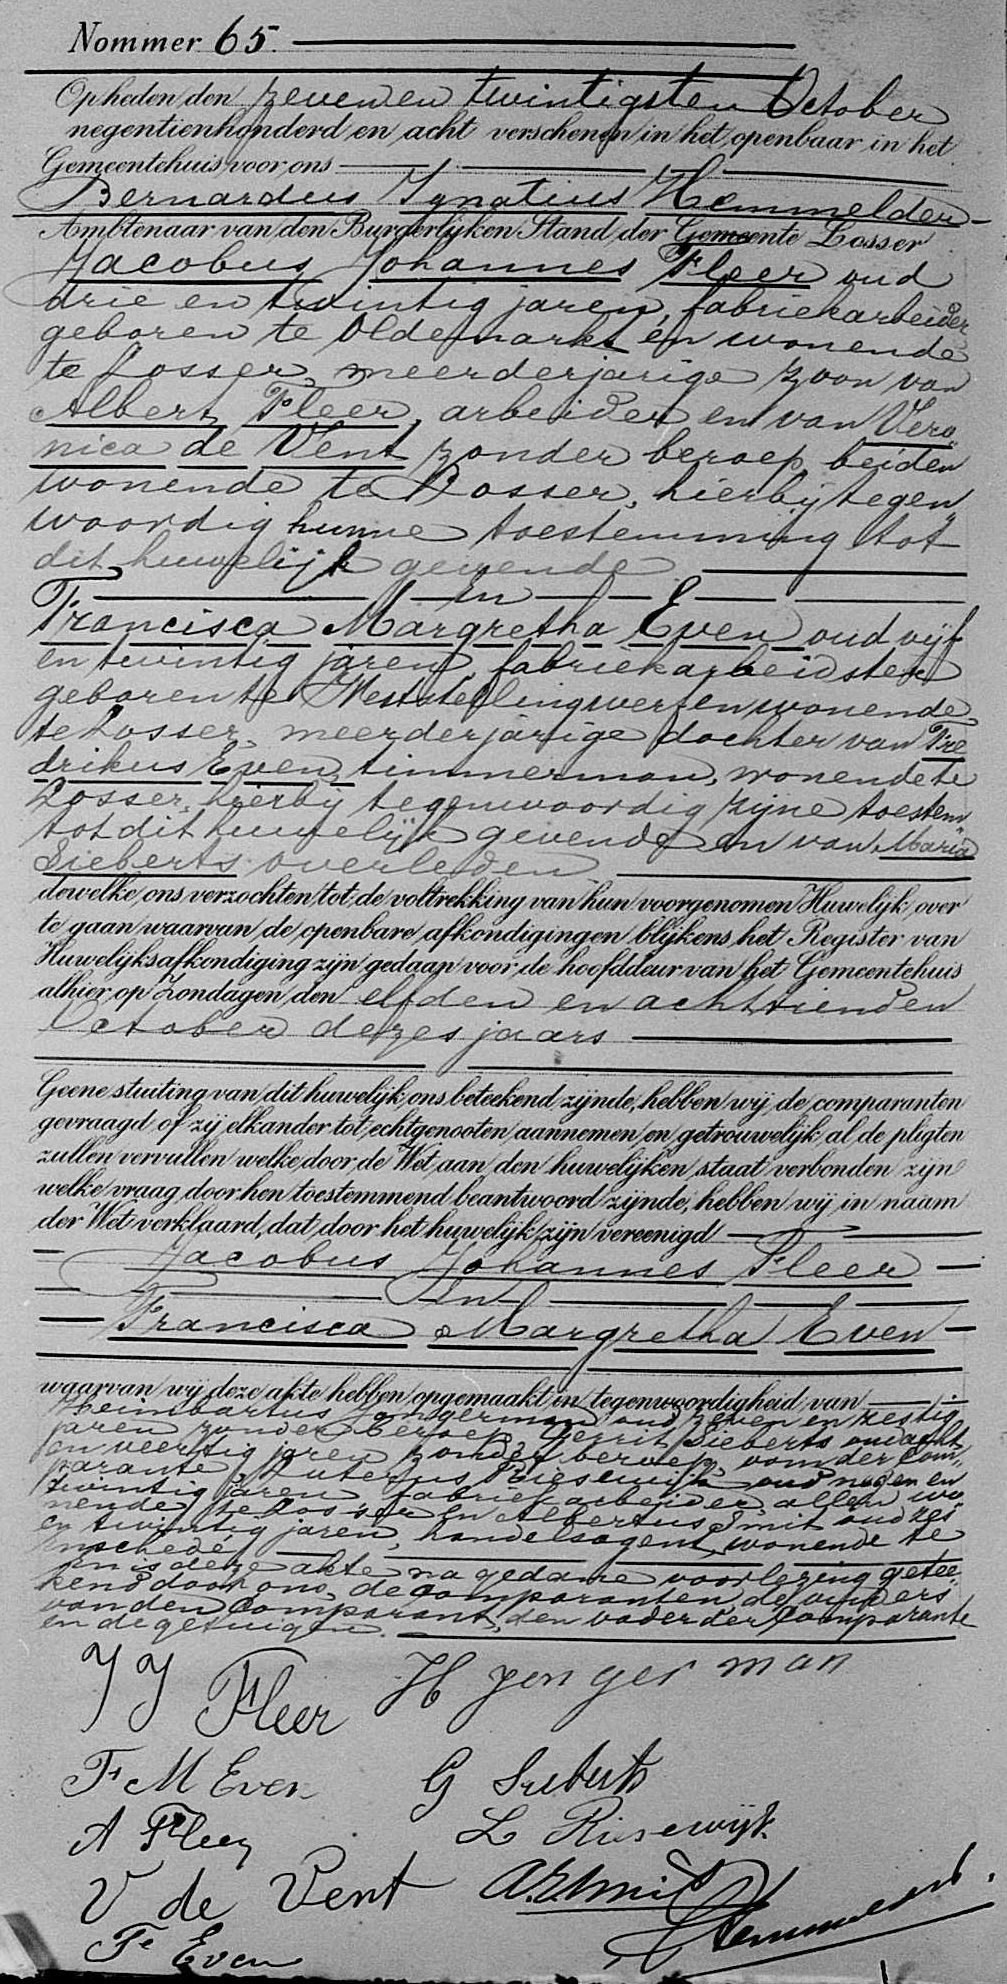 Nommer 65.
Op heden den zeven en twintigsten October
negentienhonderd en acht verschenen in het openbaar in het
Gemeentehuis voor ons
Bernardus Ignatius Hemmelder
Ambtenaar van den Burgerlijken Stand der Gemeente Losser
Jacobus Johannes Fleer oud
drie en twintig jaren, fabriekarbeider
geboren te Oldemarkt en wonende
te Losser, meerderjarige zoon van
Albert Fleer, arbeider en van Vero
nica de Vent zonder beroep, beiden
wonende te Losser, hierbij tegen
woordig hunne toestemming tot
dit huwelijk gevende
En
Francisca Margretha Even oud vijf
en twintig jaren, fabriekarbeidster
geboren te Weststellingwerf en wonende
te Losser, meerderjarige dochter van Fre
drikus Even, timmerman, wonende te
Losser, hierbij tegenwoordig zijne toestem
tot dit huwelijk gevende en van Maria
Sieberts overleden
dewelke ons verzochten tot de voltrekking van hun voorgenomen Huwelijk over
te gaan waarvan de openbare afkondigingen blijkens het Register van
Huwelijksafkondiging zijn gedaan voor de hoofddeur van het Gemeentehuis
alhier op Zondagen den elfden en achttienden
October dezes jaars
Geene stuiting van dit huwelijk ons beteekend zijnde, hebben wij de comparanten
gevraagd of zij elkander tot echtgenooten aannemen en getrouwelijk al de pligten
zullen vervullen welke door de Wet aan den huwelijken staat verbonden zijn
welke vraag door hen toestemmend beantwoord zijnde, hebben wij in naam
der Wet verklaard, dat door het huwelijk zijn vereenigd
Jacobus Johannes Fleer
En
Francisca Margretha Even
waarvan wij deze akte hebben opgemaakt in tegenwoordigheid van
Jongerman oud zeven en zestig
jaren zonder beroep, Gerrit Sieberts oud acht
en veertig jaren zonder beroep, oom der Com
parante, Luterus Riesewijk oud negen en
twintig jaren fabriekarbeider, allen wo
nende te Losser en Albertus Smit oud zes
en twintig jaren, handelsagent, wonende te
Enschede
En is deze akte na gedane voorlezing getee
kend door ons, de comparanten, de ouders
van den Comparant, den vader der Comparante
en de getuigen.
J J Fleer H Jongerman
F M Even G Sieberts
A Fleer L Riesewijk
V de Vent A Smit
Fe Even Hemmelder